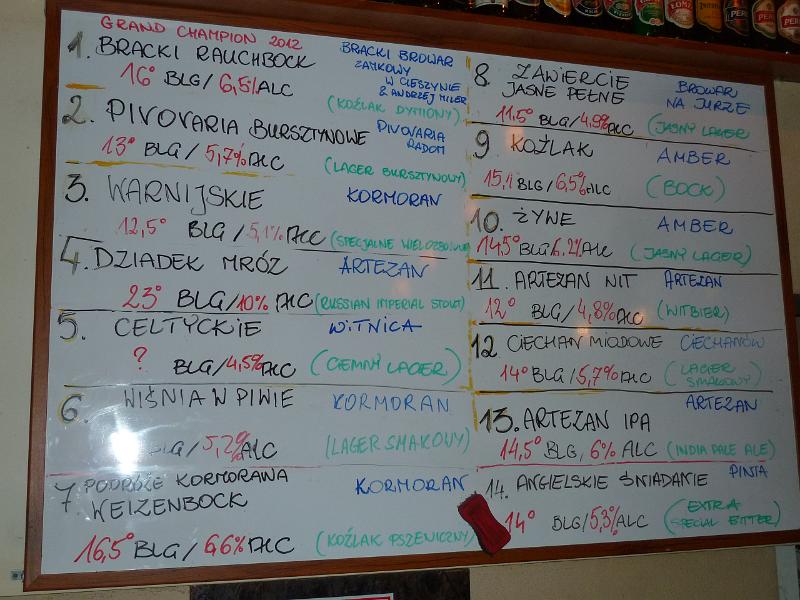 GRAND CHAMPION 2012
1. BRACKI RAUCHBOCK
BRACKI BROWAR
ZAMKOWY
W CIESZYNIE
& ANDRZEJ MILER
16° BLG/6,5%ALC
(KOŹLAK DYMIONY)
2. PIVOVARIA BURSZTYNOWE
PIVOVARIA
RADOM
13° BLG/5,7%ALC
(LAGER BURSZTYNOWY)
3. WARNIJSKIE KORMORAN
12,5° BLG/5,1%ALC (SPECJALNE WIELOZBOŻOWE
4. DZIADEK MRÓZ ARTEZAN
23° BLG/10% ALC (RUSSIAN IMPERIAL STOUT)
5. CELTYCKIE WITNICA
? BLG/4,5%ALC (CIEMNY LAGER)
6. WIŚNIA W PIWIE KORMORAN
BLG/5,2%ALC (LAGER SMAKOVY)
7. PODRÓŻE KORMORANA
WEIZENBOCK
KORMORAN
16,5° BLG/6,6%ALC (KOŹLAK PSZENICZNY)
8. ZAWIERCIE
JASNE PEŁNE
BROWAR
NA JURZE
11,5° BLG/4,9%ALC (JASNY LAGER
9 KOŹLAK AMBER
15,1 BLG/6,5%ALC (BOCK)
10. ŻYWE AMBER
14,5° BLG 6,2%ALC (JASNY LAGER)
11. ARTEZAN WIT ARTEZAN
12° BLG/4,8%ALC (WITBIER)
12 CIECHAN MIODOWE CIECHANÓW
14° BLG/5,7%ALC (LAGER
SMAKOWY)
13. ARTEZAN IPA ARTEZAN
14,5° BLG, 6% ALC (INDIA PALE ALE)
14. ANGIELSKIE ŚNIADANIE PINTA
14° BLG/5,3%ALC
(EXTRA
SPECIAL BITTER)